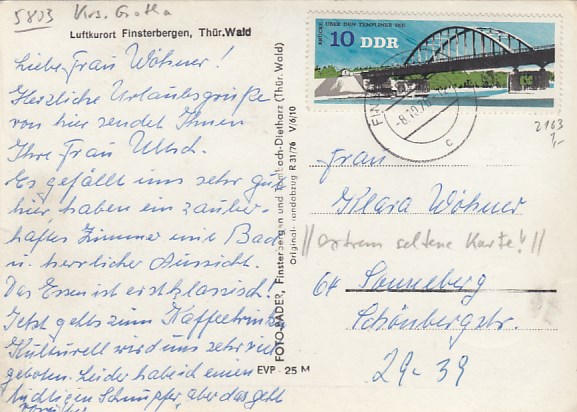 5803 Krs. Gotha
Luftkurort Finsterbergen, Thür. Wald
Liebe Frau Wöhner!
Herzliche Urlaubsgrüße
von hier sendet Ihnen
Ihre Frau
Es gefällt uns sehr gut
hier, haben ein zauber-
haftes Zimmer mit Bad
u. herrlicher Aussicht.
Das Essen ist erstklassisch.
Jetzt gehts zum Kaffeetrinken
Kulturell wird uns sehr viel
geboten. Leider hab ich einen
Schnupfen, aber das geht
vorüber
FOTO-RADER, Finsterbergen und Dietharz (Thür. Wald)
R 31/76 V/6/10
EVP -25 M
BRÜCKE ÜBER DEN TEMPLINER SEE
10 DDR
FIN
-8.10.76
c
2163
1,-
Frau
Klara Wöhner
// extrem seltene Karte! //
64 Sonneberg
Schönbergstr.
29-39